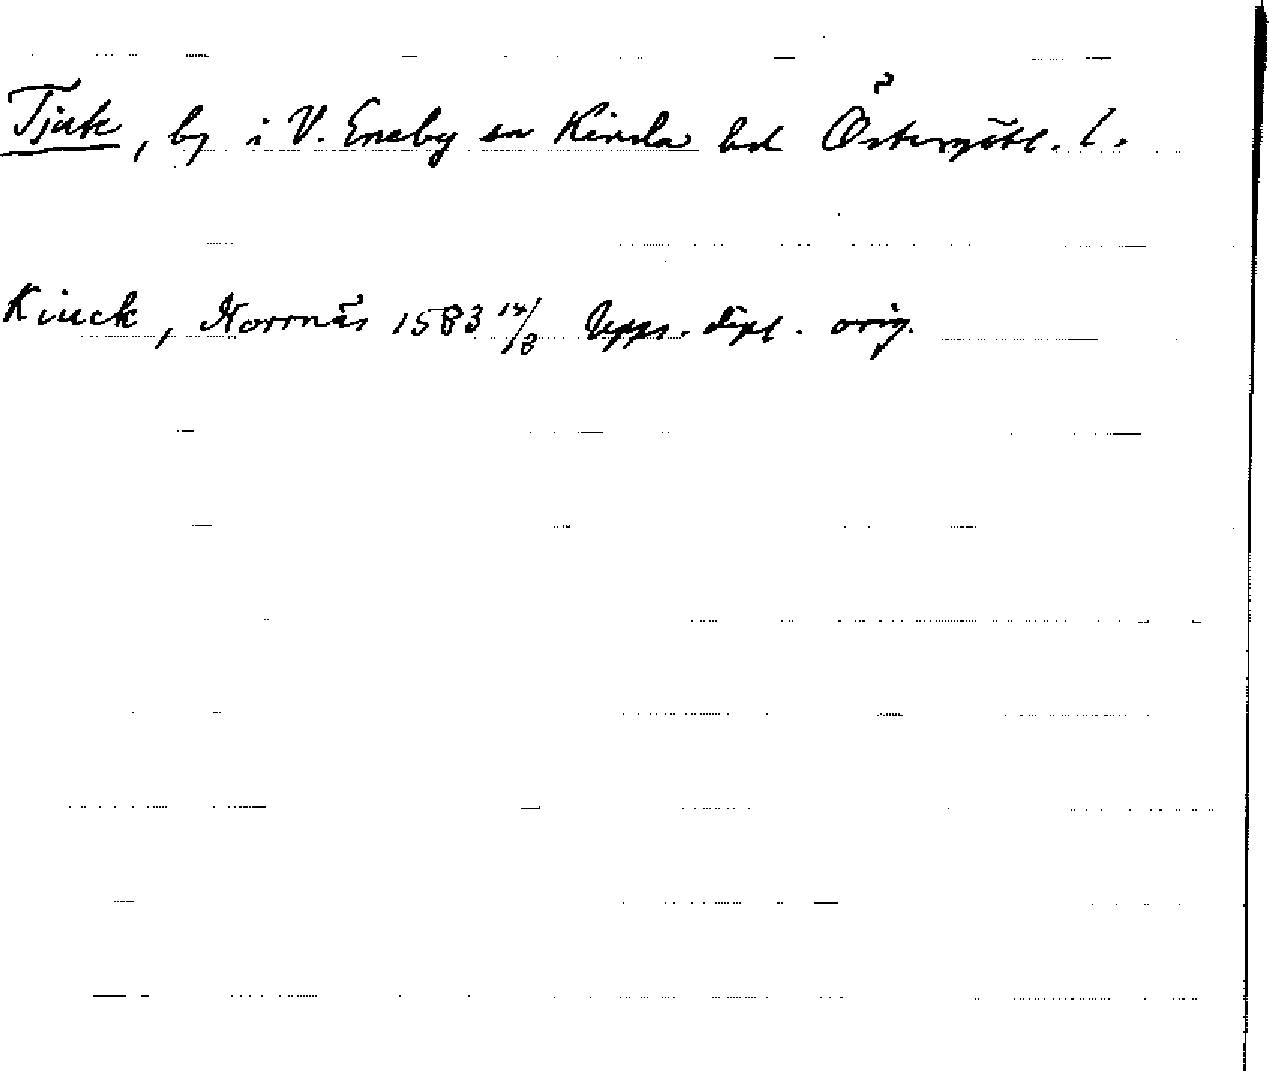 Tjuk, by i V. Eneby sn Kinda hd Östergötl. l.
Kiuck, Norrnäs 1583 14/8 Upps. dipl. orig.